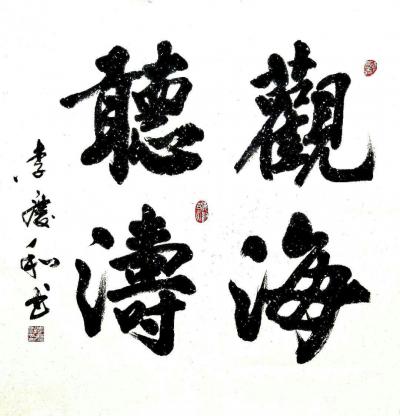 觀海
聽濤
李慶和书